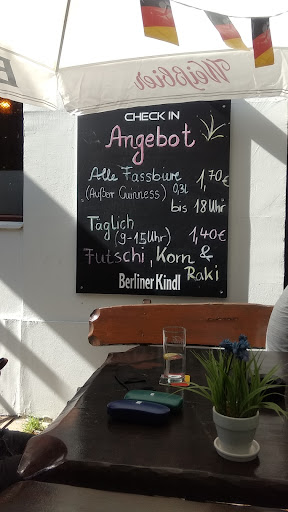 Weißbier
CHECK IN
Angebot
Alle Fassbiere 1,70€
(Außer Guinness) 0,3L
bis 18 Uhr
Täglich
(9-15 Uhr) 1,40€
Futschi, Korn &
Raki
Berliner Kindl